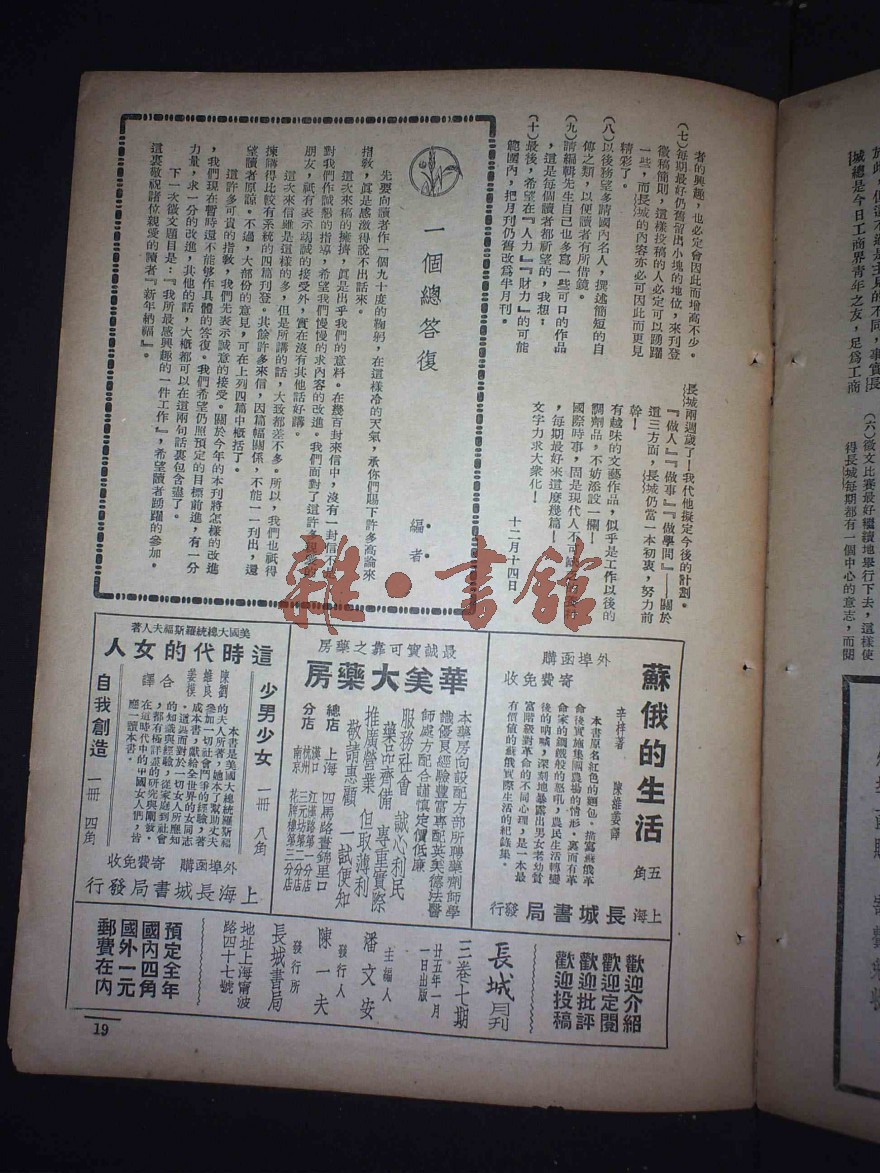 者的興趣，也必定會因此而增高不少。
(七)每期最好仍舊留出小塊的地位，來刋登
徵稿簡則，這樣投稿的人必定可以踴躍
一些，而長城的內容亦必可因此而更見
精彩了。
(八)以後務望多請國內名人，撰述簡短的自
傳之類，以便讀者有所借鏡。
(九)請編輯先生自己也多寫一些可口的作品
，這是每個讀者都祈望的，我想：
(十)最後，希望在『人力』『財力』的可能
範圍內，把月刋仍舊改爲半月刋。
長城兩週歲了！我代他擬定今後的計劃。
『做人』『做事』『做學問』——關於
這三方面，長城仍當一本初衷，努力前
幹！
有趣味的文藝作品，似乎是工作以後的
調劑品，不妨添設一欄！
國際時事，固是現代人不可
，每期最好來這麼幾篇！
文字力求大衆化！
十二月十四日
一個總答復
編者
先要向讀者作一個九十度的鞠躬，在這樣冷的天氣，承你們賜下許多高論來
指敎，眞是感激得說不出話來。
這次來稿的擁擠，眞是出乎我們的意料。在幾百封來信中，沒有一封信不
對我們作誠懇的指導，希望我們慢慢的求內容的改進。我們面對了這許多
朋友，祇有表示竭誠的接受外，實在沒有其他話好講。
這次來信雖是這樣的多，但是所講的話，大致都差不多。所以，我們也祇得
揀講得比較有系統的四篇刋登。其餘許多來信，因篇幅關係，不能一一刋出，還
望讀者原諒。不過，大部份的意見，可在上列四篇中概括了。
這許多可貴的指敎，我們先表示誠意的接受。關於今年的本刋將怎樣的改進
，我們現在暫時還不能够作具體的答復。我們希望仍照預定的目標前進，有一分
力量，求一分的改進，其他的話，大槪都可以在這兩句話裏包含盡了。
下一次徵文題目是：『我所最感興趣的一件工作』，希望讀者踴躍的參加。
這裏敬祝諸位親愛的讀者『新年納福』。
雜·書館
外埠函購
寄費免收
蘇俄的生活
五角
辛梓著
陳維姜譯
本書原名紅色的麵包。描寫蘇俄革
命後實施集團農塲的情形。裏而有革
命家的鋼鐵般的怒吼，農民生活轉變
後的吶喊，深刻地暴露出男女老幼貧
富階級對革命的不同心理，是一本最
有價值的蘇俄實際生活的紀錄集。
上海長城書局發行
最誠實可靠之藥房
華美大藥房
本藥房向設配方部所聘藥劑師學
識優良經驗豐富專配英美德法醫
師處方配合謹愼定價低廉
服務社會 誠心利民
藥品齊備 專重實際
推廣營業 但取薄利
敬請惠顧 一試便知
總店 上海 四馬路晝錦里口
分店
漢口 江漢路第一分店
杭州 三元坊第二分店
南京 花牌樓第三分店
美國大總統羅斯福夫人著
這時代的女人
陳維姜
劉良模
合譯
本書是美國大總統羅斯福
的夫人所著，她本了幫助丈夫
參加一切社會鬥爭的經驗，著
成本書，獻給全世界的女同志
。這裏面對於一切女人所應知
的知識與經驗，從家庭到社會
，都有極詳盡的研究與闡發。
在這時代中的中國女人們，皆
應一讀本書。
少男少女 一冊 八角
自我創造 一冊 四角
外埠函購 寄費免收
上海長城書局發行
歡迎介紹
歡迎定閱
歡迎批評
歡迎投稿
長城月刊
三卷七期
廿五年一月
一日出版
主編人
潘文安
發行人
陳一夫
發行所
長城書局
地址上海甯波
路四十七號
預定全年
國內四角
國外一元
郵費在內
19
於此，但這不過是主見的不同，事實長
城總是今日工商界青年之友，足爲工商
(六)徵文比賽最好繼續地舉行下去，這樣使
得長城每期都有一個中心的意志，而閱